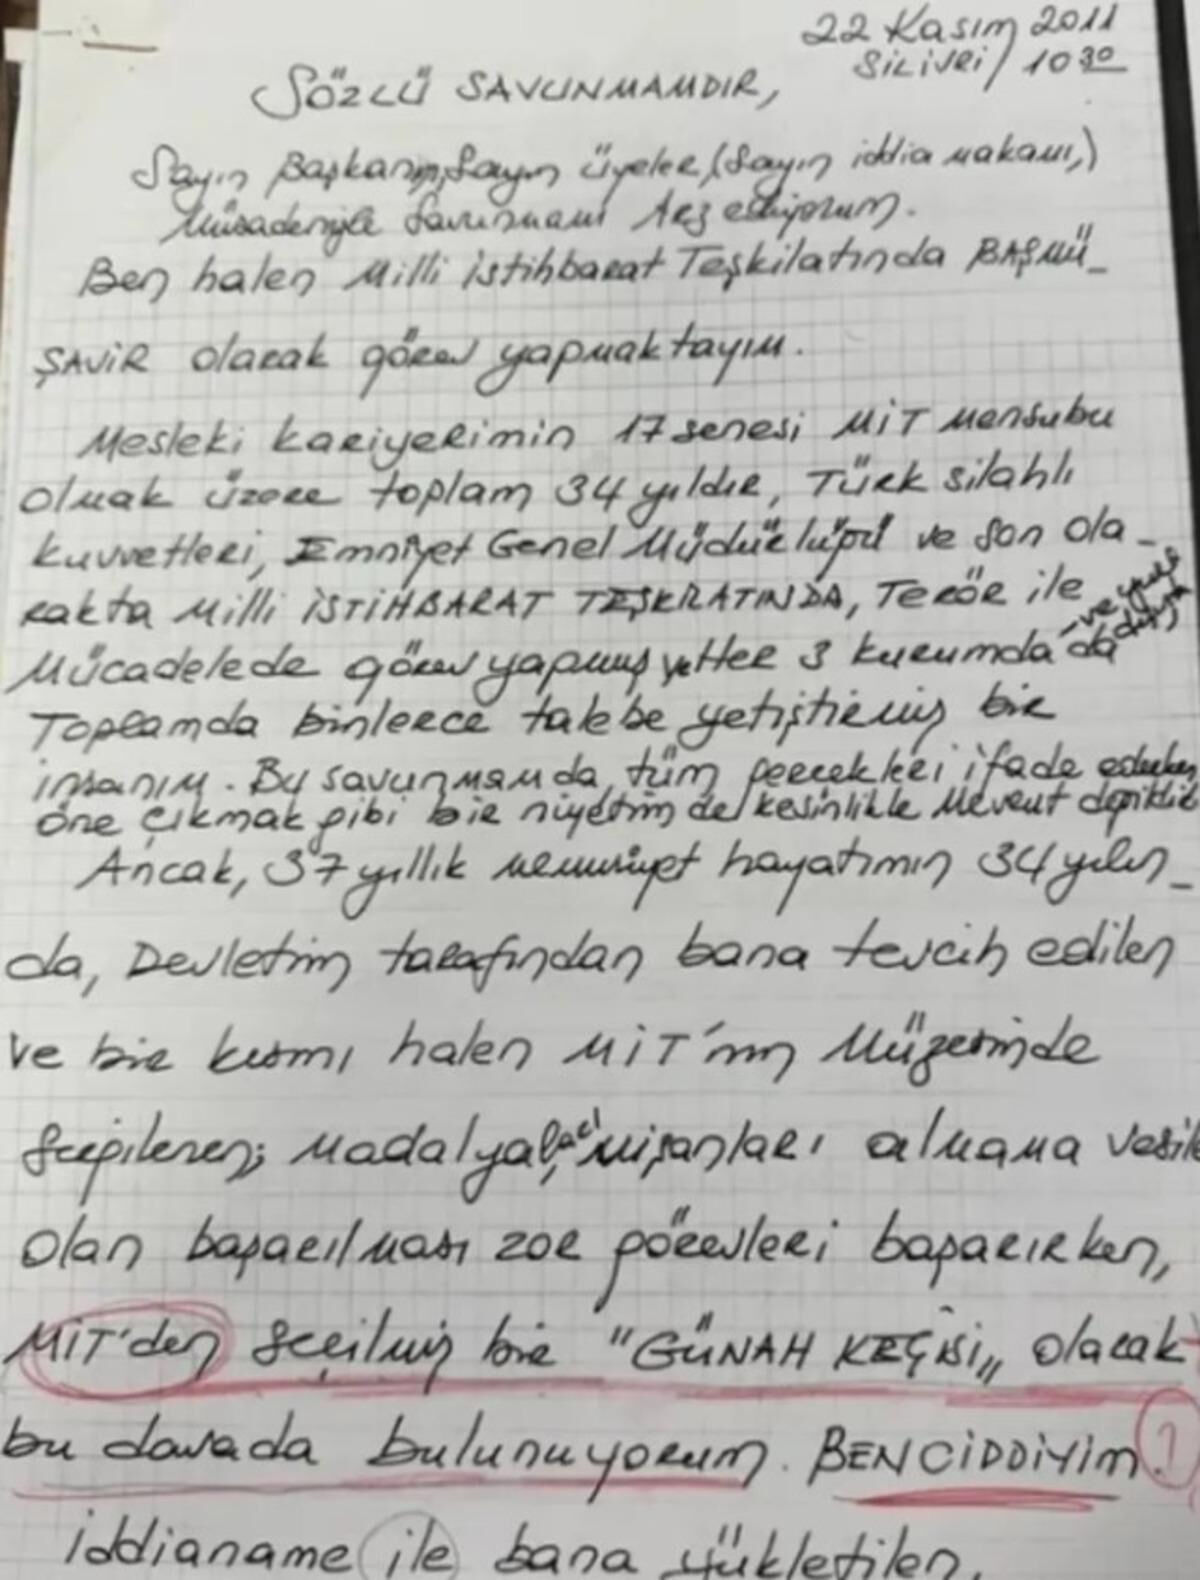 22 Kasım 2011
Silivri / 10 30
SÖZLÜ SAVUNMAMDIR,
Sayın Başkanım, Sayın üyeler, (Sayın iddia makamı,)
Müsadenizle Savunmamı Arz ediyorum.
Ben halen Milli istihbarat Teşkilatında BAŞMÜ-
ŞAVİR olarak görev yapmaktayım.
Mesleki kariyerimin 17 senesi MİT Mensubu
olmak üzere toplam 34 yıldır, Türk silahlı
kuvvetleri, Emniyet Genel Müdürlüğü ve son ola-
rakta Milli İSTİHBARAT TEŞKİLATINDA, Terör ile
Mücadelede görev yapmış ve her 3 kurumda da
Toplamda binlerce talebe yetiştirmiş bir
insanım. Bu savunmamda, tüm gerçekleri ifade ederken
öne çıkmak gibi bir niyetim de kesinlikle Mevcut değildir
Ancak, 37 yıllık memuriyet hayatımın 34 yılın-
da, Devletim tarafından bana tevcih edilen
ve bir kısmı halen MİT'nın Müzesinde
Sergilenen; Madalyaları, nişanları almama vesile
olan başarılması zor görevleri başarırken,
MİT'den seçilmiş bir "GÜNAH KEÇİSİ" olarak
bu davada bulunuyorum. BEN CİDDİYİM !
iddianame ile bana yükletilen,